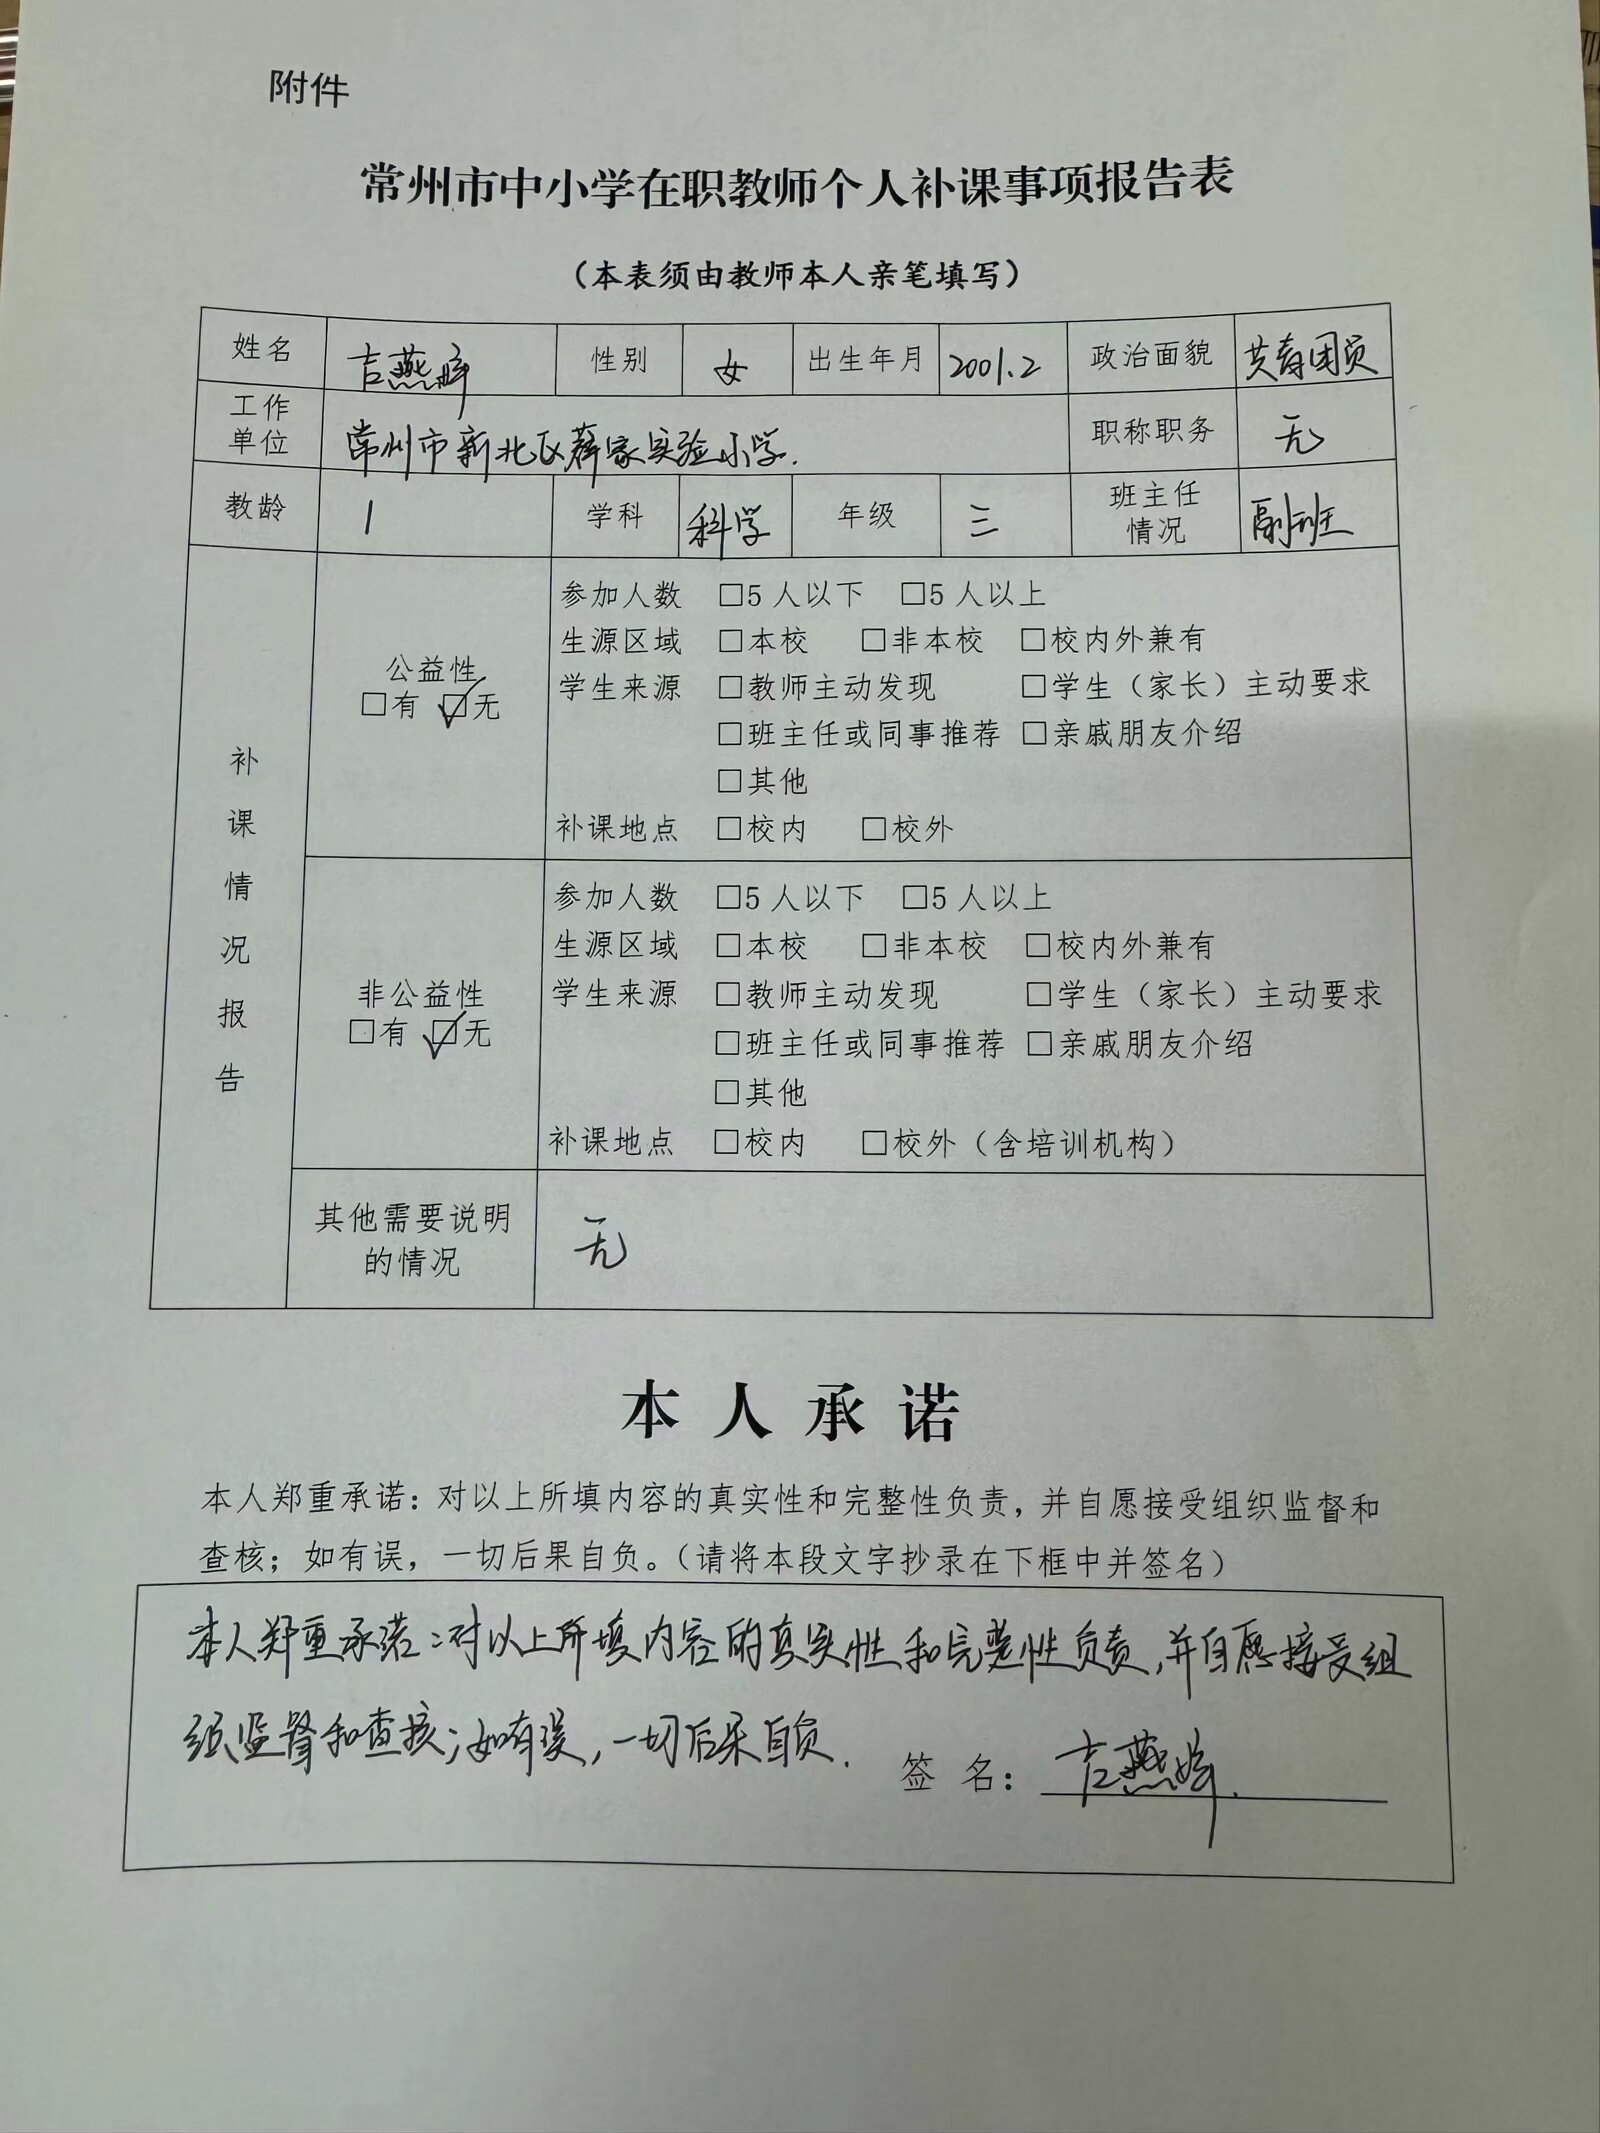 附件
常州市中小学在职教师个人补课事项报告表
（本表须由教师本人亲笔填写）
姓名 吉燕婷 性别 女 出生年月 2001.2 政治面貌 共青团员
工作单位 常州市新北区薛家实验小学. 职称职务 无
教龄 1 学科 科学 年级 三 班主任情况 副班
补课情况报告
公益性
□有 ☑无
参加人数 □5人以下 □5人以上
生源区域 □本校 □非本校 □校内外兼有
学生来源 □教师主动发现 □学生（家长）主动要求
□班主任或同事推荐 □亲戚朋友介绍
□其他
补课地点 □校内 □校外
非公益性
□有 ☑无
参加人数 □5人以下 □5人以上
生源区域 □本校 □非本校 □校内外兼有
学生来源 □教师主动发现 □学生（家长）主动要求
□班主任或同事推荐 □亲戚朋友介绍
□其他
补课地点 □校内 □校外（含培训机构）
其他需要说明
的情况
无
本人承诺
本人郑重承诺：对以上所填内容的真实性和完整性负责，并自愿接受组织监督和
查核；如有误，一切后果自负。（请将本段文字抄录在下框中并签名）
本人郑重承诺：对以上所填内容的真实性和完整性负责，并自愿接受组
织监督和查核；如有误，一切后果自负.
签名：吉燕婷.